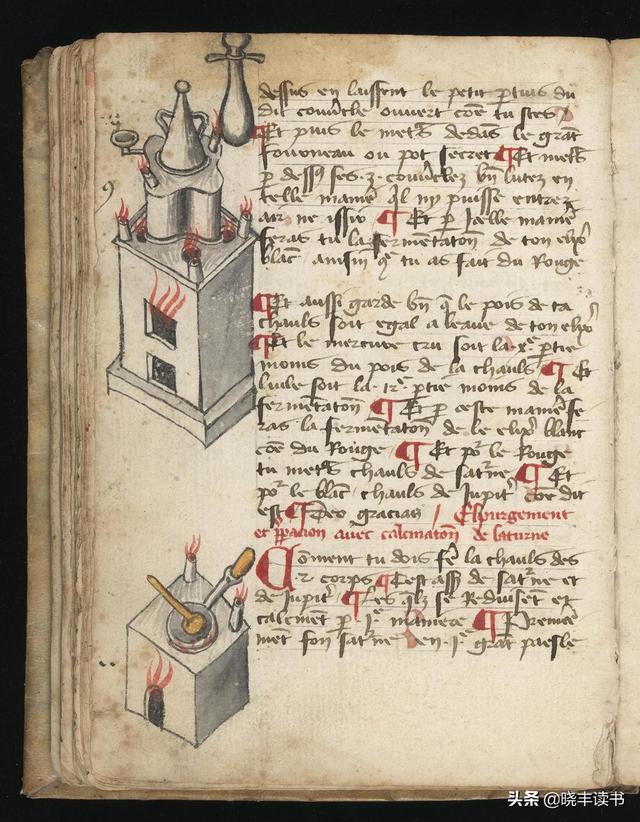 dessus en laissent le petit ptuis du
dit couvcle ouvert coe tu sces
¶ Et puis le mets dedas le grat
fourneau ou pot secret ¶ Et mets
p dessq ses .2. couvcles bn lutez en
telle manie ql ny puisse entrer
air ne issir ¶ Et p Icelle manie
feras tu la fermetaton de ton elixr
blac ainsin q tu as fait du Rouge
¶ Et aussi garde bn q le pois de ta
chauls soit egal a leaue de ton elixr
¶ Et le mercure cru soit la ptie
moins du pois de la chauls ¶ Et
luile soit la ptie moins de la
fermetaton ¶ Et p ceste manie fe
ras la fermetaton de le elixr blanc
coe du Rouge ¶ Et por le Rouge
tu mets chauls de satne ¶ Et
por le blac chauls de Jupit coe dit
est ¶ Deo gracias / Espurgement
et ppacion avec calcinaton de saturne
Coment tu dois fe la chauls des
.2. corps ¶ Cest ass de satne et
de Jupit ¶ Les qlz se Reduisent et
calcinent p 1e maniere ¶ Premie
met fon satne en 1e grat paesle
头条 @晓丰读书